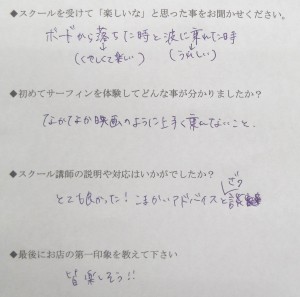 ◆スクールを受けて「楽しいな」と思った事をお聞かせください。
ボードから落ちた時と波に乗れた時
(くやしくて楽しい) (うれしい)
◆初めてサーフィンを体験してどんな事が分かりましたか？
なかなか映画のように上手く乗れないこと.
◆スクール講師の説明や対応はいかがでしたか？
とても良かった! こまかいアドバイスと
◆最後にお店の第一印象を教えて下さい
皆楽しそう!!